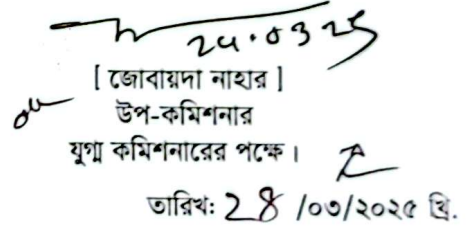 24.03.25
[ জোবায়দা নাহার ]
উপ-কমিশনার
যুগ্ম কমিশনারের পক্ষে।
তারিখ: ২৪ /০৩/২০২৫ খ্রি.